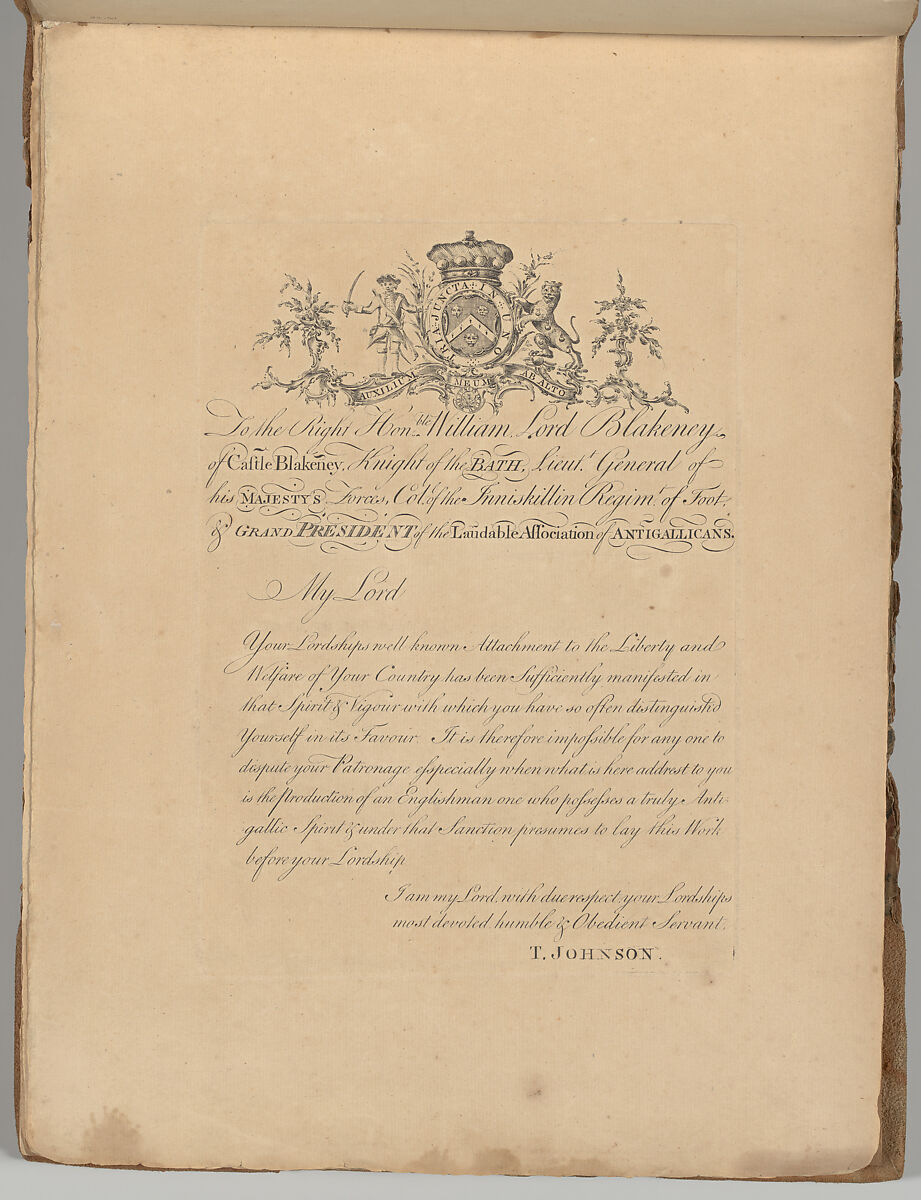 TRIA · JUNCTA · IN · UNO
AUXILIUM MEUM AB ALTO
To the Right Hon.ble William Lord Blakeney
of Castle Blakeney, Knight of the BATH, Lieut.t General of
his MAJESTY'S Forces, Col.l of the Inniskillin Regim.t of Foot,
& GRAND PRESIDENT of the Laudable Aſsociation of ANTIGALLICANS.
My Lord
Your Lordships well known Attachment to the Liberty and
Welfare of Your Country has been Sufficiently manifested in
that Spirit & Vigour with which you have so often distinguish'd
Yourself in its Favour. It is therefore impoſsible for any one to
dispute your Patronage eſspecially when what is here addrest to you
is the Production of an Englishman one who poſseſses a truly Anti-
gallic Spirit & under that Sanction presumes to lay this Work
before your Lordship
I am my Lord, with due respect, your Lordships
most devoted humble & Obedient Servant.
T. JOHNSON.